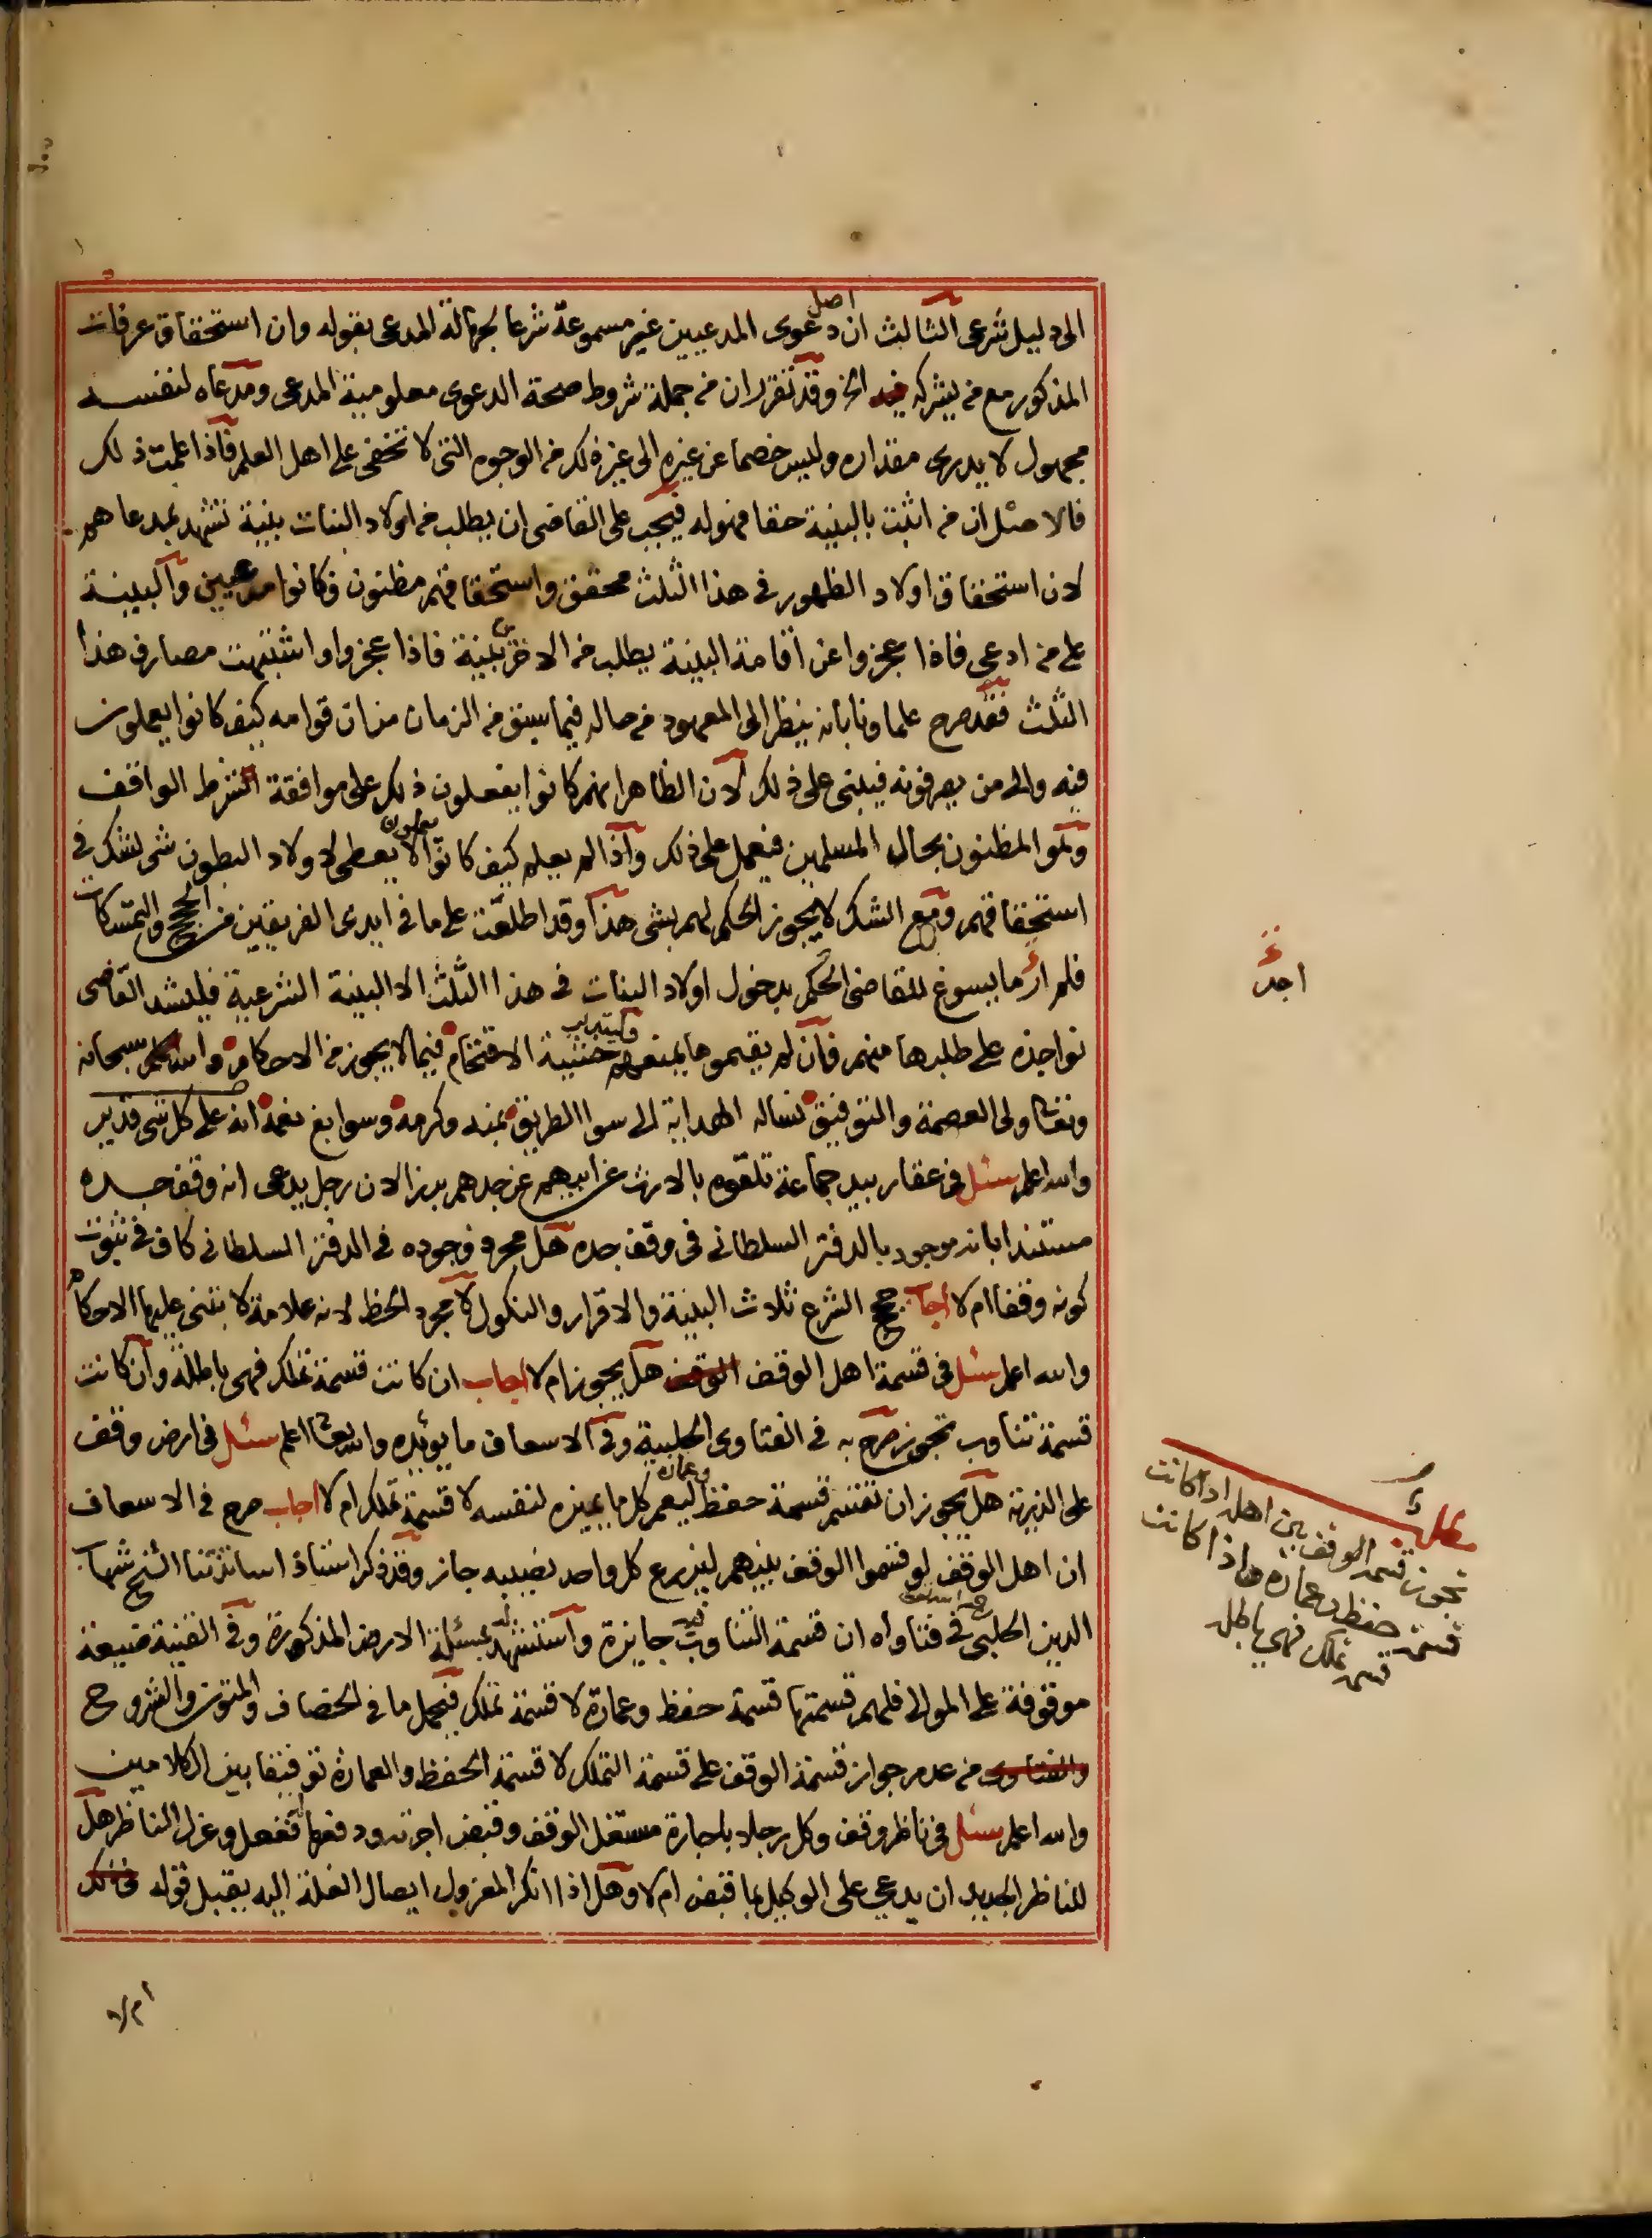 الى دليل شرعى الثالث ان اصل دعوى المدعيين غير مسموعة شرعا لجهالة المدعى بقوله وان استحقاق عرفات
المذكور مع من يشركه فيه الخ وقد تقرر ان من جملة شروط صحة الدعوى معلومية المدعى ومدعاه لنفسه
مجهول لا يدرى مقداره وليس خصما عن غيره الى غير ذلك من الوجوه التى لا تخفى على اهل العلم فاذا علمت ذلك
فالاصل ان من اثبت بالبينة حقا فهو له فيجب على القاضى ان يطلب من اولاد البنات بينة تشهد بمدعاهم
لان استحقاق اولاد الظهور فى هذا الثلث محقق واستحقاقهم مظنون فكانوا مدعيين والبينة
على من ادعى فاذا عجزوا عن اقامة البينة يطلب من الاخرين بينة فاذا عجزوا واشتبهت مصارف هذا
الثلث فقد صرح علماونا بانه ينظر الى المعهود من حاله فيما سبق من الزمان من ان قوامه كيف كانوا يعملون
فيه والى من يصرفونه فيبنى على ذلك لان الظاهر انهم كانوا يفعلون ذلك على موافقة الشرط الواقف
وهو المظنون بحال المسلمين فيعمل على ذلك واذا لم يعلم كيف كانوا يعملون لا يعطى لاولاد البطون شى للشك فى
استحقاقهم ومع الشك لا يجوز الحكم لهم بشى هذا وقد اطلعت على ما فى ايدى الفريقين من الحجج والتمسكات
فلم ار ما يسوغ للقاضى الحكم بدخول اولاد البنات فى هذا الثلث الا البينة الشرعية فليشد القاضى
نواجذه على طلبها منهم فان لم يقيموها يمنعهم خشية الاقتحام فيما لا يجوز من الاحكام والله سبحانه
وتعالى ولى العصمة والتوفيق نساله الهداية الى سوا الطريق بمنه وكرمه وسوابغ نعمه انه على كل شى قدير
والله اعلم سئل فى عقار بيد جماعة تلقوه بالارث عن ابيهم عن جدهم برز الان رجل يدعى انه وقف جده
مستندا بانه موجود بالدفتر السلطانى فى وقف جده هل مجرد وجوده فى الدفتر السلطانى كاف فى ثبوت
كونه وقفا ام لا اجاب حجج الشرع ثلاث البينة والاقرار والنكول لا مجرد الخط لانه علامة لا تبتنى عليها الاحكام
والله اعلم سئل فى قسمة اهل الوقف الوقف هل يجوز ام لا اجاب ان كانت قسمة تملك فهى باطلة وان كانت
قسمة تناوب تجوز صرح به فى الفتاوى الحلبية وفى الاسعاف ما يوئيده والله تعالى اعلم سئل فى ارض وقف
على الذرية هل يجوز ان تقسم قسمة حفظ وعمارة ليعمر كل ما يميزه لنفسه لا قسمة تملك ام لا اجاب صرح فى الاسعاف
ان اهل الوقف لو قسموا الوقف بينهم ليزرع كل واحد نصيبه جاز وقد ذكر استاذ اساتذتنا الشيخ شهاب
الدين الحلبى فى فتاواه ان قسمة التناوب جايزة واستشهد بمسئلة الارض المذكورة وفى القنية ضيعة
موقوفة على الموالى فلهم قسمتها قسمة حفظ وعمارة لا قسمة تملك فيحمل ما فى الخصاف والمتون والشروح
والفتاوى من عدم جواز قسمة الوقف على قسمة التملك لا قسمة الحفظ والعمارة توفيقا بين الكلامين
والله اعلم سئل فى ناظر وقف وكل رجلا باجارة مستغل الوقف وقبض اجرته ودفعها له ففعل وعزل الناظر هل
للناظر الجديد ان يدعى على الوكيل بما قبض ام لا وهل اذا انكر المعزول ايصال الغلة اليه يقبل قوله فى ذلك
ام لا
اجد
مطلب
تجوز قسمة الوقف بين اهله اذا كانت
قسمة حفظ وعمارة واذا كانت
قسمة تملك فهى باطلة